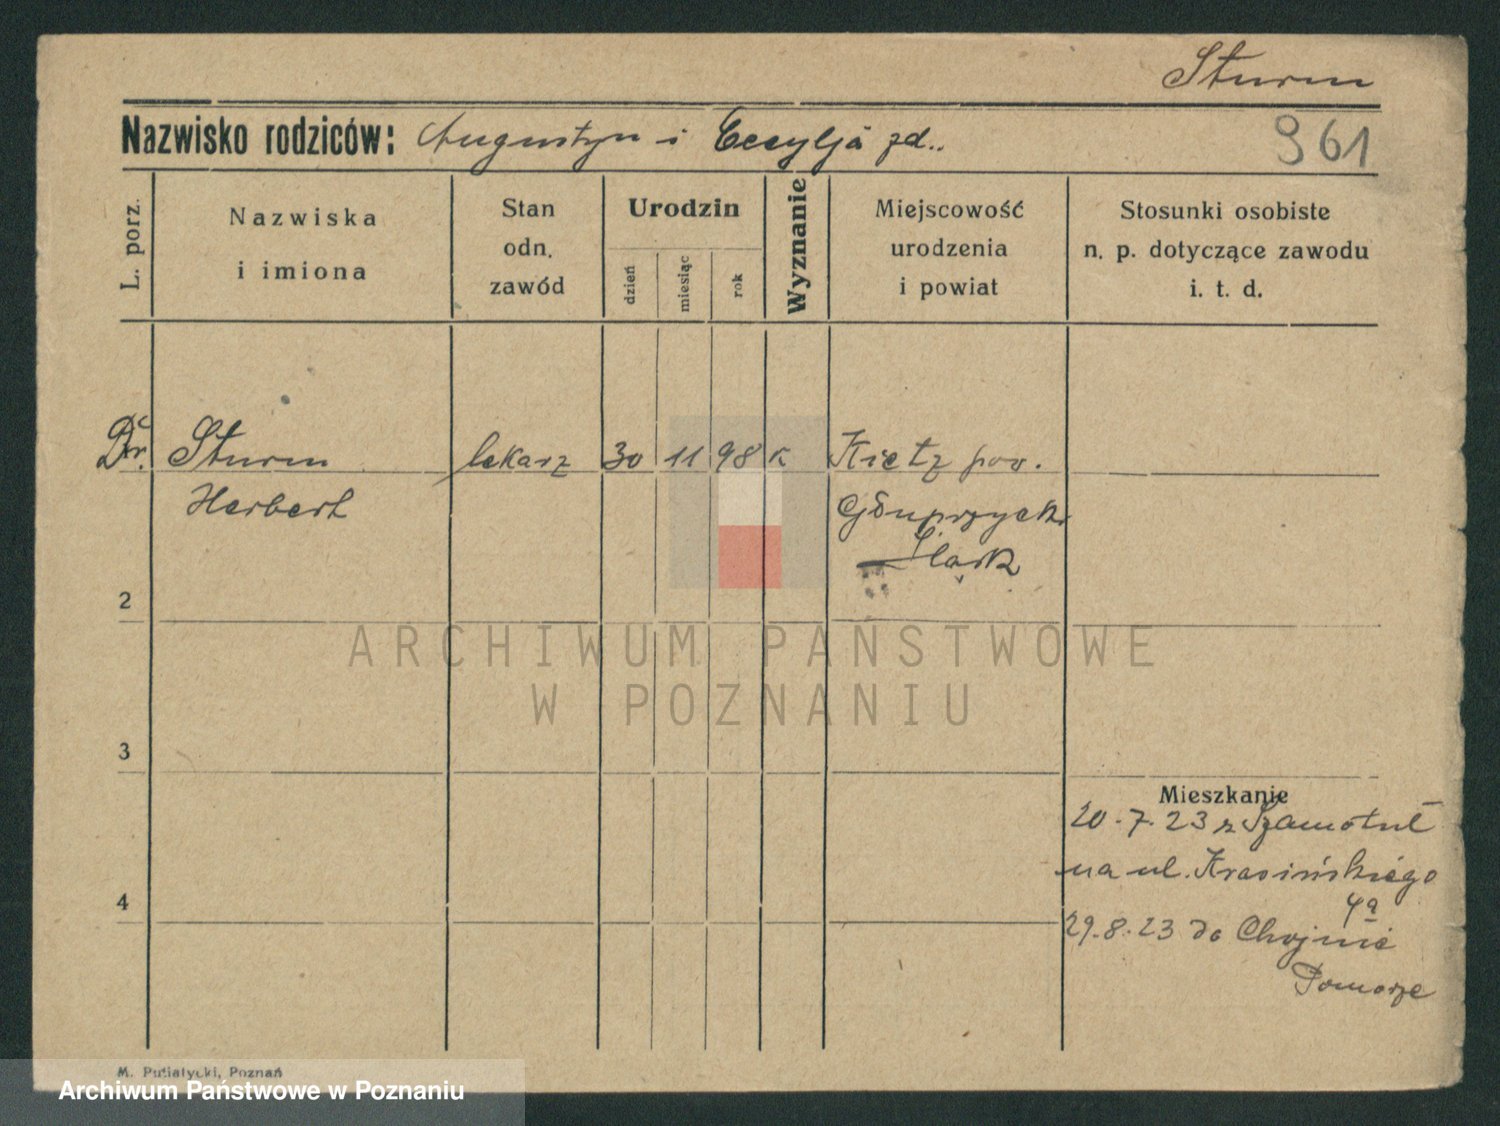 Sturm
Nazwisko rodziców: Augustyn i Cecylja zd..
961
L. porz.
Nazwiska
i imiona
Stan
odn.
zawód
Urodzin
dzień
miesiąc
rok
Wyznanie
Miejscowość
urodzenia
i powiat
Stosunki osobiste
n. p. dotyczące zawodu
i. t. d.
Dr. Sturm lekarz 30 11 98 K Kietz pow.
Herbert
Śląsk
2
ARCHIWUM PAŃSTWOWE
W POZNANIU
3
Mieszkanie
20.7.23 z Szamotuł
na ul. Krasińskiego
4a
4
29.8.23 do Chojnic
Pomorze
M. Putiatycki, Poznań
Archiwum Państwowe w Poznaniu